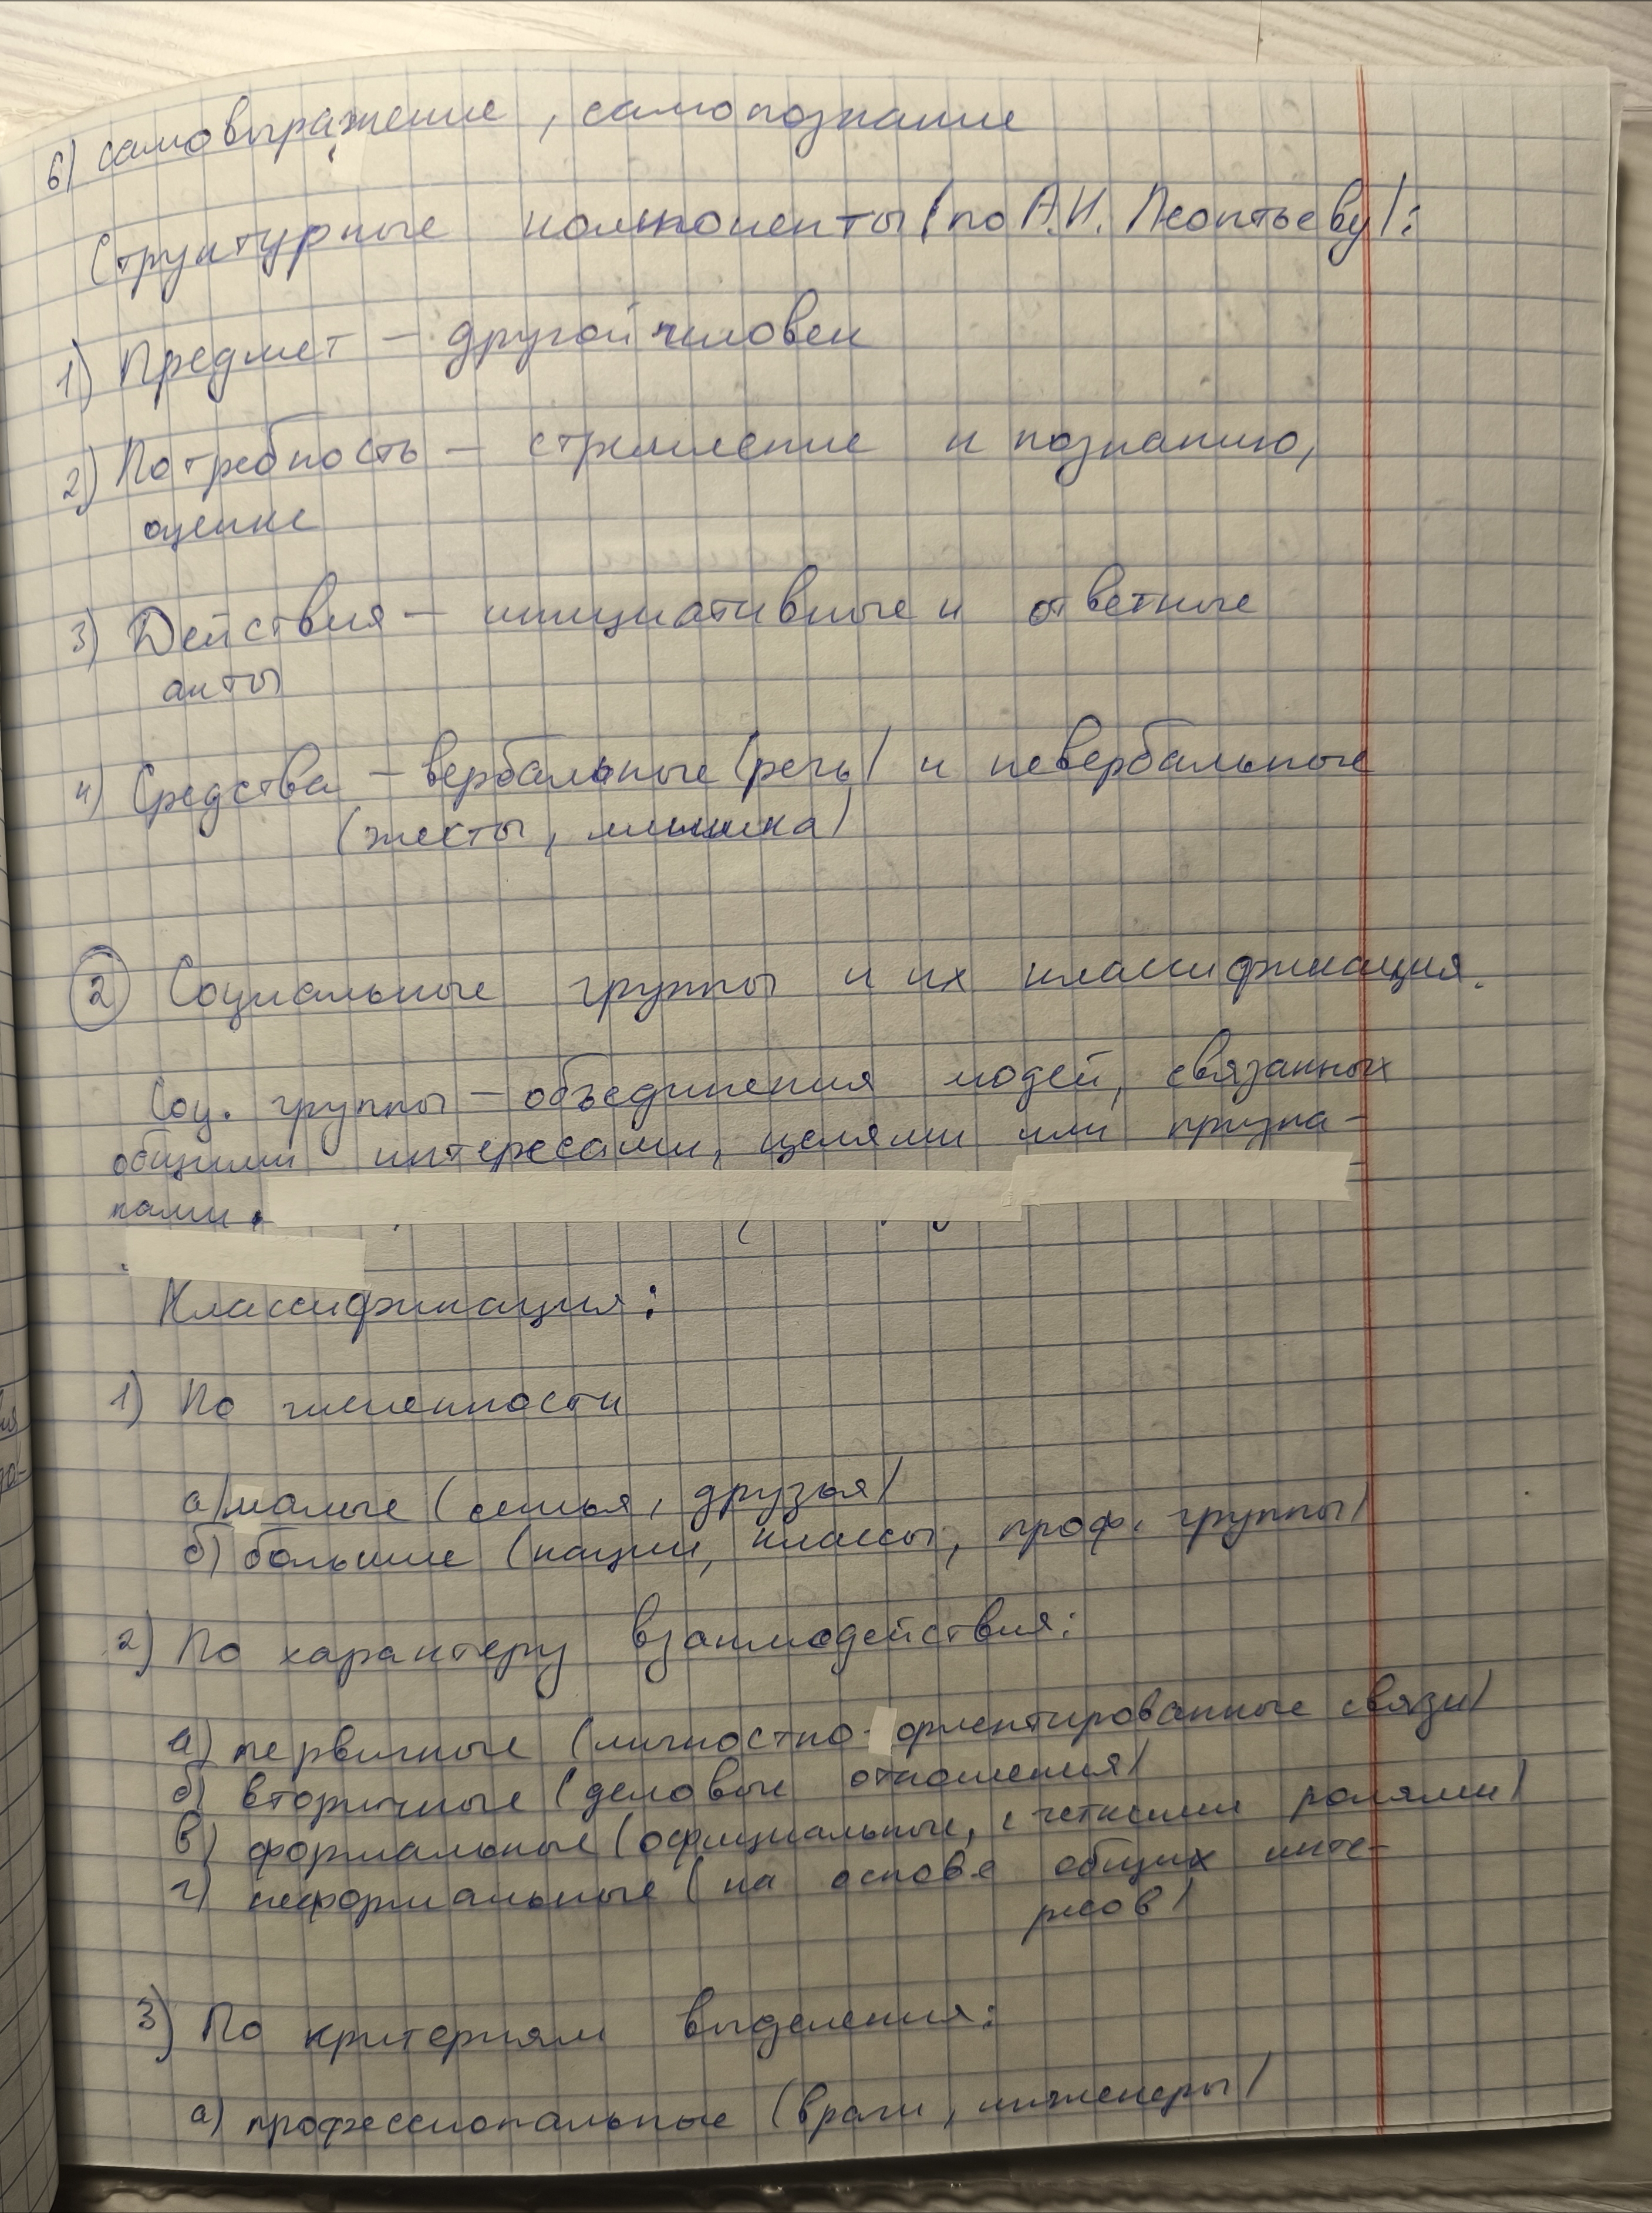 6) самовыражение, самопознание
Структурные компоненты (по А.Н. Леонтьеву):
1) Предмет – другой человек
2) Потребность – стремление к познанию,
оценке
3) Действия – инициативные и ответные
акты
4) Средства – вербальные (речь) и невербальные
(жесты, мимика)
2 Социальные группы и их классификация.
Соц. группы – объединения людей, связанных
общими интересами, целями или призна-
ками.
Классификация:
1) По численности
а) малые (семья, друзья)
б) большие (нации, классы, проф. группы)
2) По характеру взаимодействия:
а) первичные (личностно-ориентированные связи)
б) вторичные (деловые отношения)
в) формальные (официальные, с четкими ролями)
г) неформальные (на основе общих инте-
ресов)
3) По критериям выделения:
а) профессиональные (врачи, инженеры)